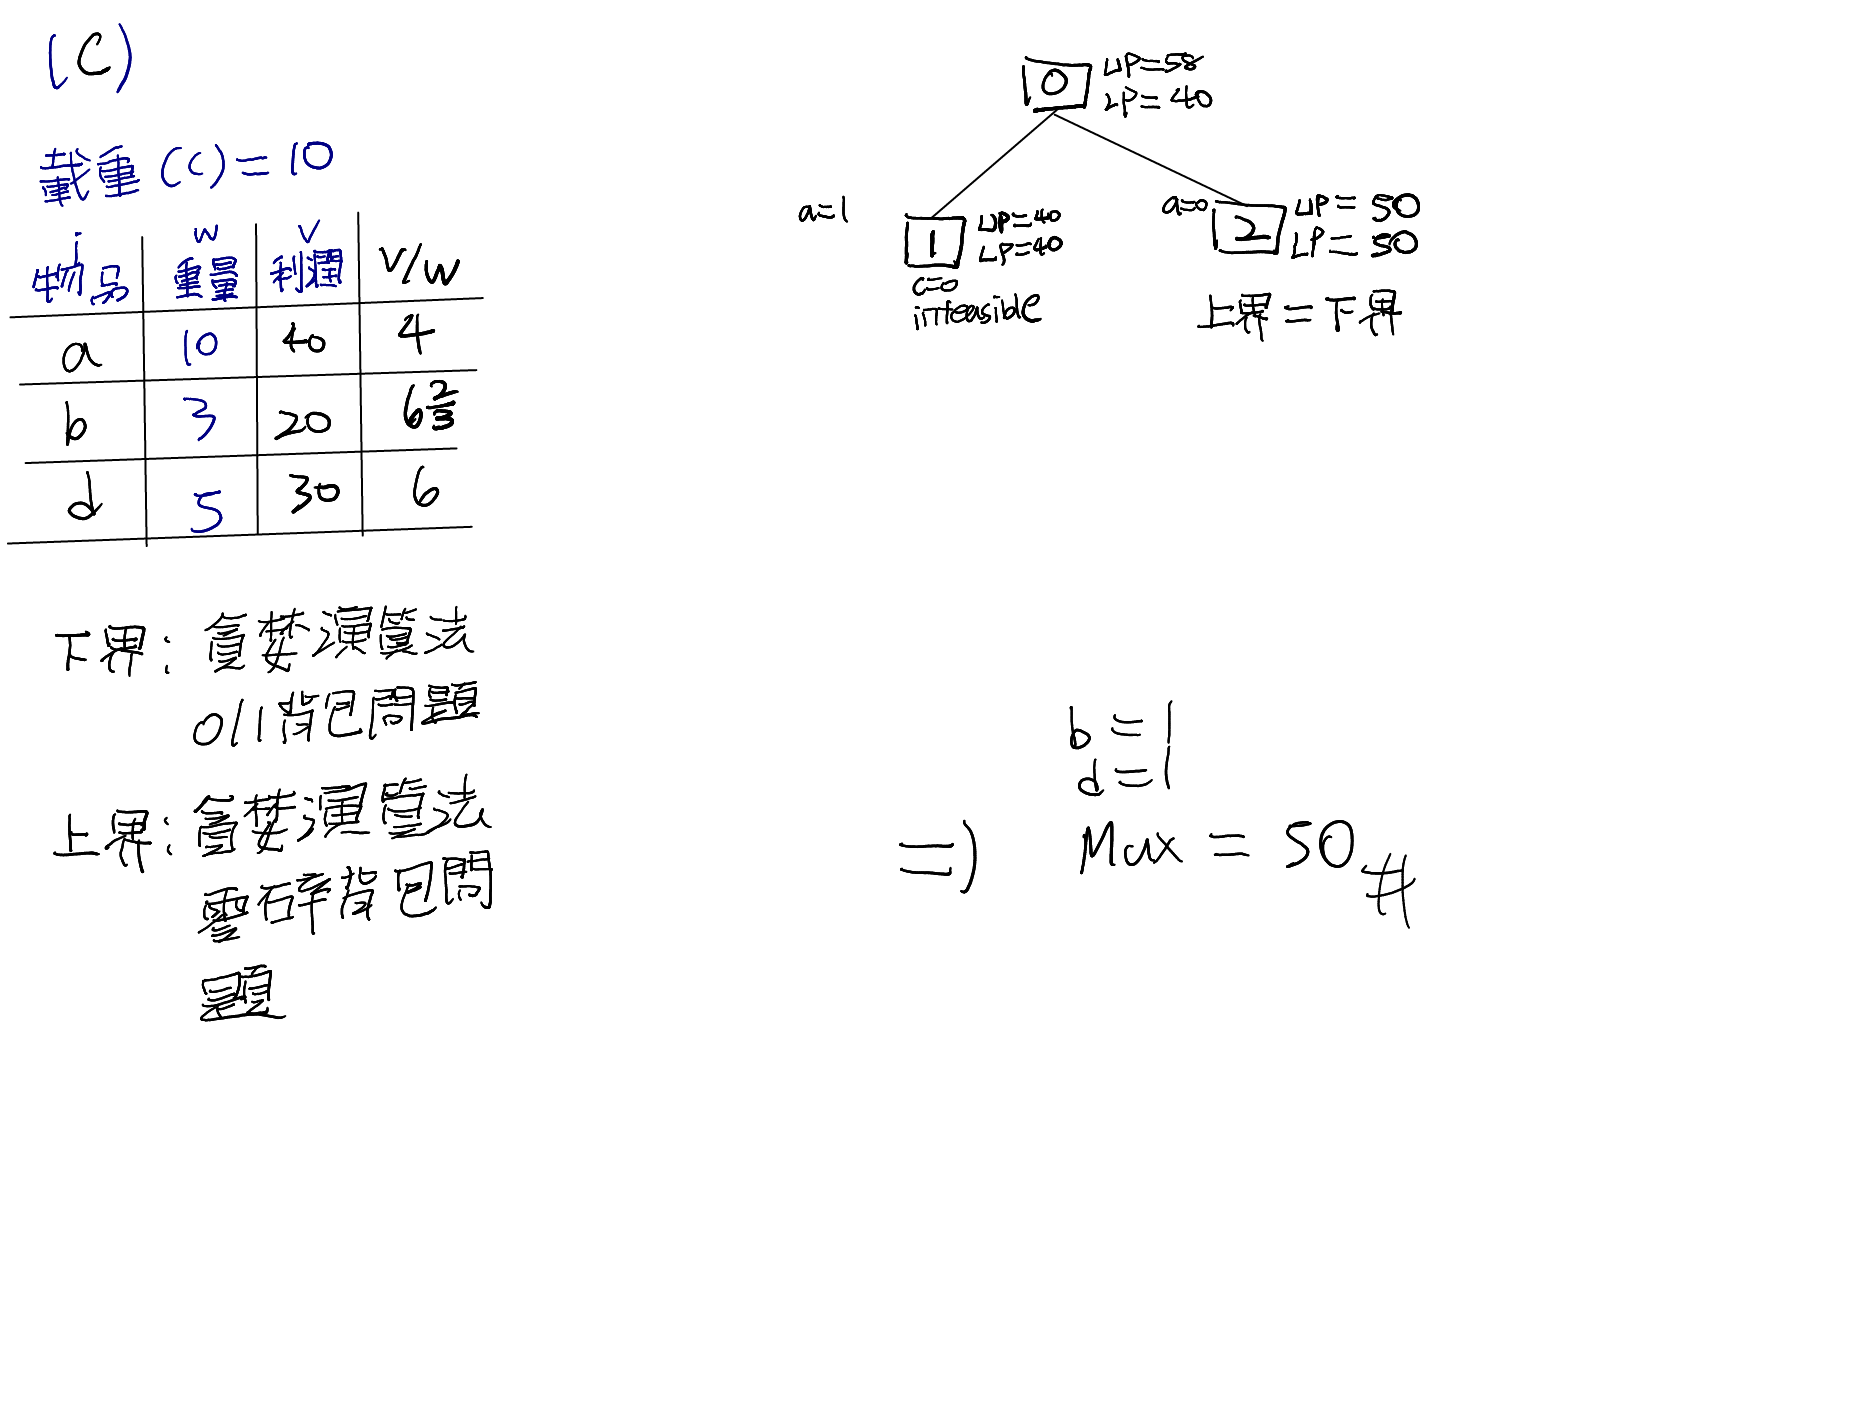 (C)
載重(C)=10
i w v
物品 重量 利潤 V/w
a 10 40 4
b 3 20 6 2/3
d 5 30 6
下界：貪婪演算法
0/1背包問題
上界：貪婪演算法
零碎背包問
題
0 UP=58
LP=40
a=1 1 UP=40
LP=40
c=0
infeasible
a=0 2 UP=50
LP=50
上界=下界
b=1
d=1
=) Max=50 #